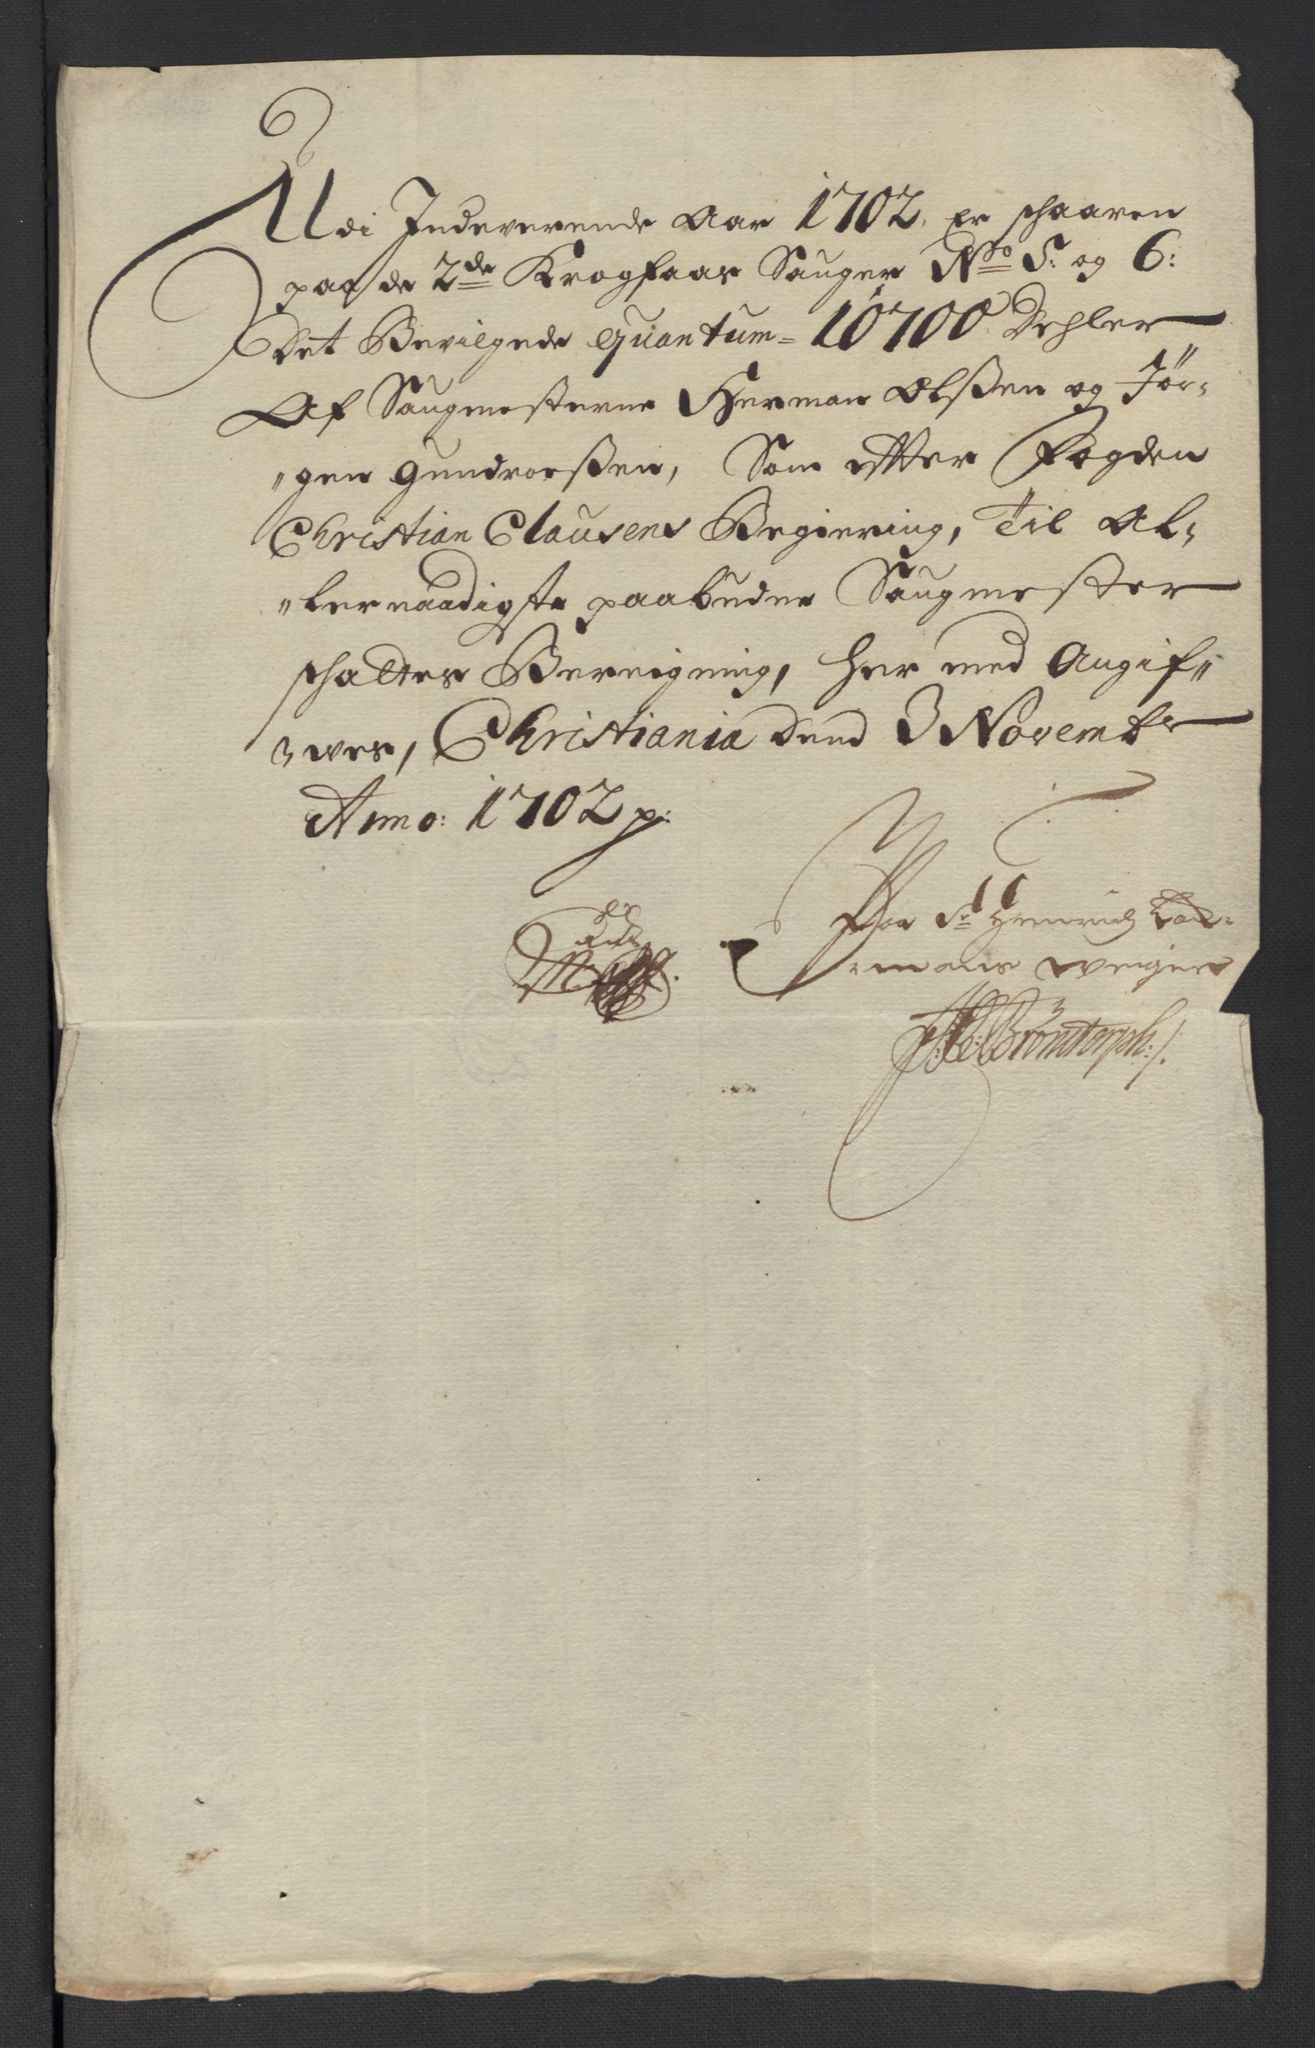 Udi Indeverende Aar 1702, er schaaren
paa de 2de Krogfaas Sauger No 5: og 6:
Det Bevilgede quantum = 10700 Dehler
Af Saugmesterne Herman Olsßen og Jør-
"gen Gundroesßen, Som efter Fogden
Christian Clausens Begiering, Til Al-
"lernaadigste paabudne Saugmester
schattes Bereigning, her med Angif"
"ves, Christiania Dend 3 Novembr
Anno: 1702 p:
Paa Sr Henrich
mans Veigne
Bröndorph:/.